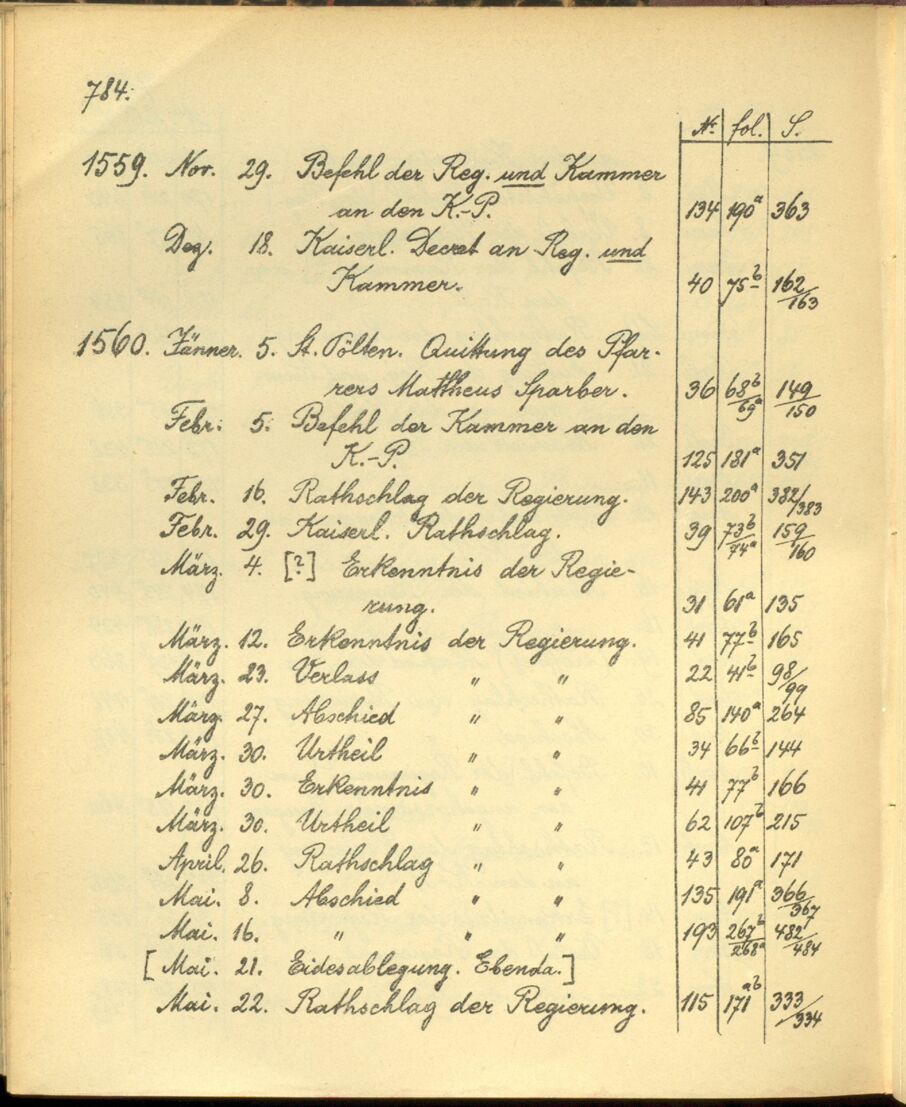 784.
Nr. fol. S.
1559. Nov. 29. Befehl der Reg. und Kammer
an den K.-P. 134 190a 363
Dez. 18. Kaiserl. Decret an Reg. und
Kammer. 40 75b 162/163
1560. Jänner. 5. St. Pölten. Quittung des Pfar-
rers Mattheus Sparber. 36 68b/69a 149/150
Febr. 5. Befehl der Kammer an den
K.-P. 125 181a 351
Febr. 16. Rathschlag der Regierung. 143 200a 382/383
Febr. 29. Kaiserl. Rathschlag. 39 73b/74a 159/160
März. 4. [?] Erkenntnis der Regie-
rung. 31 61a 135
März. 12. Erkenntnis der Regierung. 41 77b 165
März. 23. Verlass " " 22 41b 98/99
März. 27. Abschied " " 85 140a 264
März. 30. Urtheil " " 34 66b 144
März. 30. Erkenntnis " " 41 77b 166
März. 30. Urtheil " " 62 107b 215
April. 26. Rathschlag " " 43 80a 171
Mai. 8. Abschied " " 135 191a 366/367
Mai. 16. " " " 193 267b/268a 482/484
[Mai. 21. Eidesablegung. Ebenda.]
Mai. 22. Rathschlag der Regierung. 115 171ab 333/334